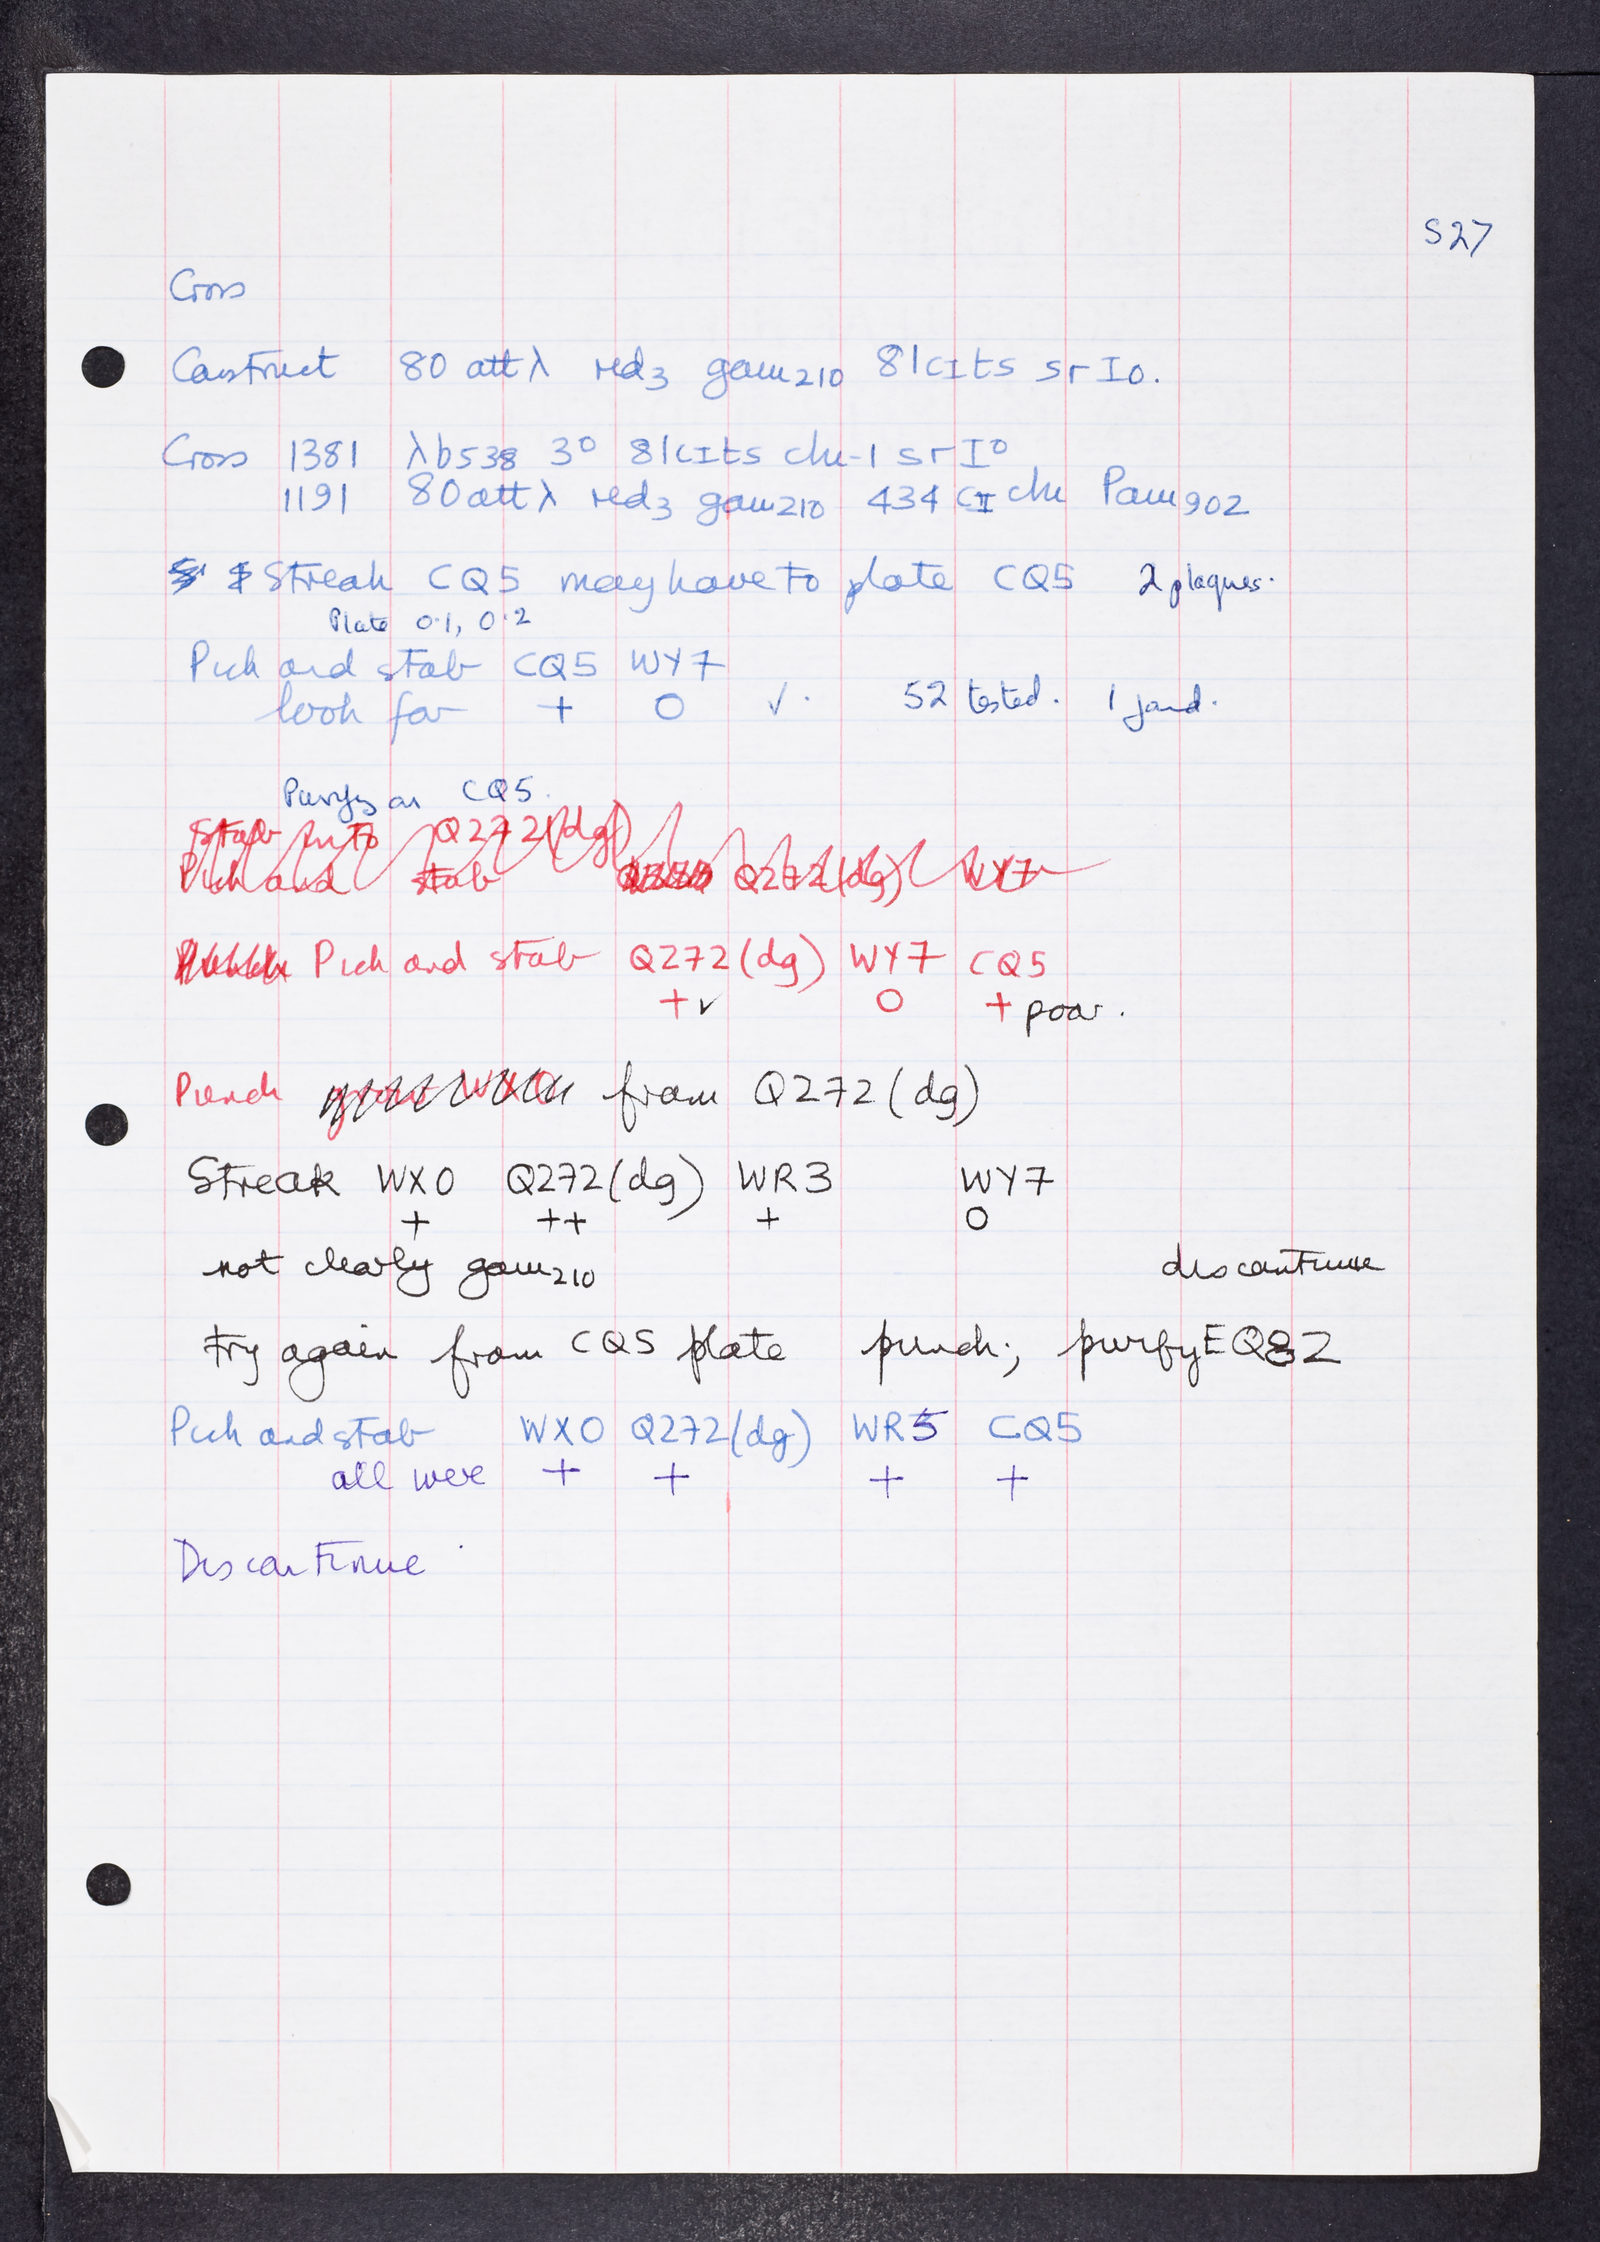 S27
Cross
Construct 80 att λ red3 gam210 81cIts srI0.
Cross 1381 λb538 3° 81cIts chi-1 srI°
1191 80 att λ red3 gam210 434 cII chi Pam902
Streak CQ5 may have to plate CQ5 2 plaques.
Plate 0.1, 0.2
Pick and stab CQ5 WY7
look for + O ✓. 52 tested. 1 found.
Purify on CQ5.
Stab into Q272(dg)
Pick and stab Q272(dg) WY7
Pick and stab Q272(dg) WY7 CQ5
+ ✓ O + poor.
Punch from Q272(dg)
Streak WX0 Q272(dg) WR3 WY7
+ ++ + O
not clearly gam210 discontinue
try again from CQ5 plate punch; purify EQ82
Pick and stab WX0 Q272(dg) WR5 CQ5
all were + + + +
Discontinue